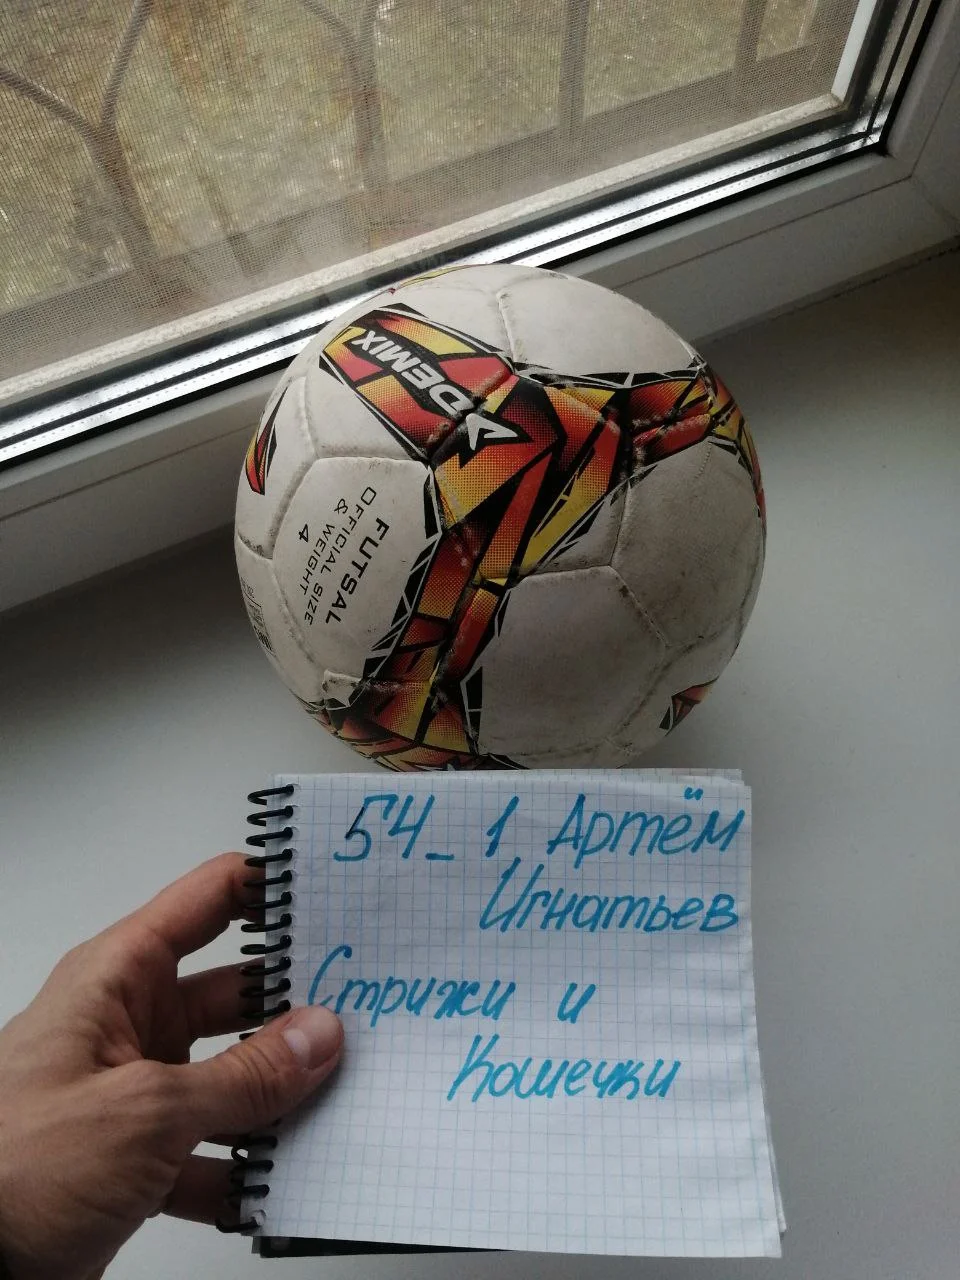 DEMIX
FUTSAL
OFFICIAL SIZE
& WEIGHT
4
54_1 Артём
Игнатьев
Стрижи и
Кошечки